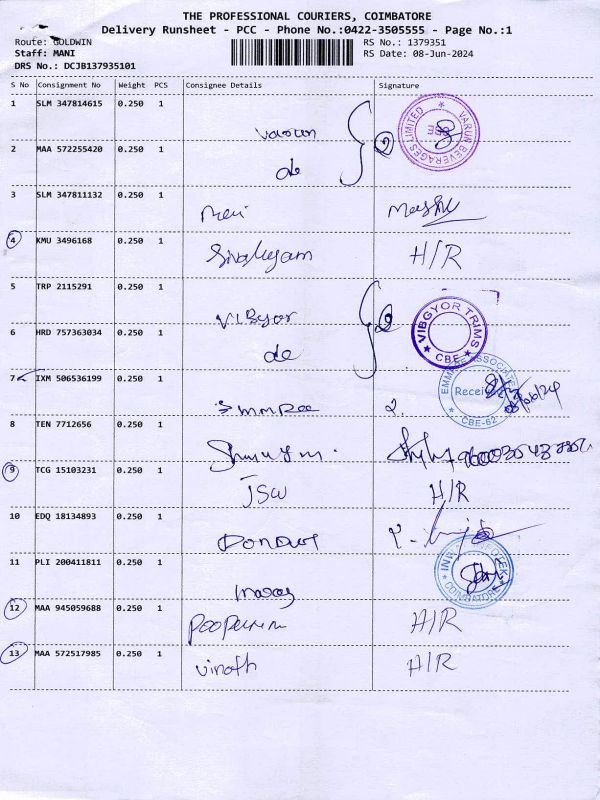 THE PROFESSIONAL COURIERS, COIMBATORE
Delivery Runsheet - PCC - Phone No.:0422-3505555 - Page No.:1
Route: GOLDWIN RS No.: 1379351
Staff: MANI RS Date: 08-Jun-2024
DRS No.: DCJB137935101
S No Consignment No Weight PCS Consignee Details Signature
1 SLM 347814615 0.250 1
varun
VARUN BEVERAGES LIMITED
2 MAA 572255420 0.250 1
do
2
3 SLM 347811132 0.250 1
4 KMU 3496168 0.250 1
H/R
5 TRP 2115291 0.250 1
VIBgyor
VIBGYOR TRIMS
CBE
6 HRD 757363034 0.250 1
do
7 IXM 506536199 0.250 1
Received
CBE-62
8 TEN 7712656 0.250 1
9 TCG 15103231 0.250 1
JSW H/R
10 EDQ 18134893 0.250 1
11 PLI 200411811 0.250 1
COIMBATORE
12 MAA 945059688 0.250 1
H/R
13 MAA 572517985 0.250 1
vinoth H/R